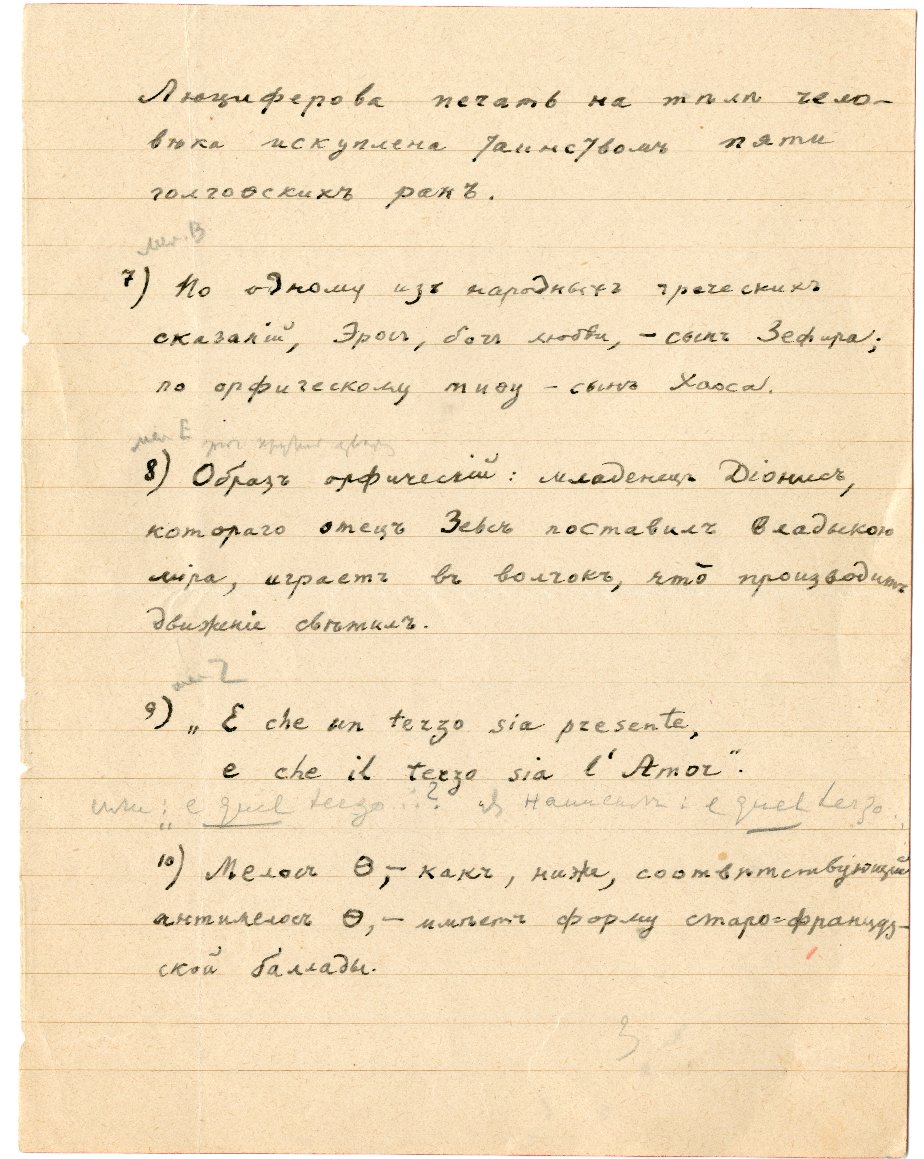 Люциферова печать на тѣлѣ чело-
вѣка искуплена таинствомъ пяти
голгоѳскихъ ранъ.
мел. В
7) По одному изъ народныхъ греческихъ
сказаній, Эросъ, богъ любви, – сынъ Зефира;
по орфическому миѳу – сынъ Хаоса.
мел Е
8) Образъ орфическій: младенецъ Діонисъ,
котораго отецъ Зевсъ поставилъ владыкою
міра, играетъ въ волчокъ, что́ производитъ
движеніе свѣтилъ.
мел Z
9) „E che un terzo sia presente,
e che il terzo sia l'Amor".
или: „e quel terzo...? Я написалъ: e quel terzo..
10) Мелосъ Θ, – какъ, ниже, соотвѣтствующій
антимелосъ Θ, – имѣетъ форму старо=француз-
ской баллады.